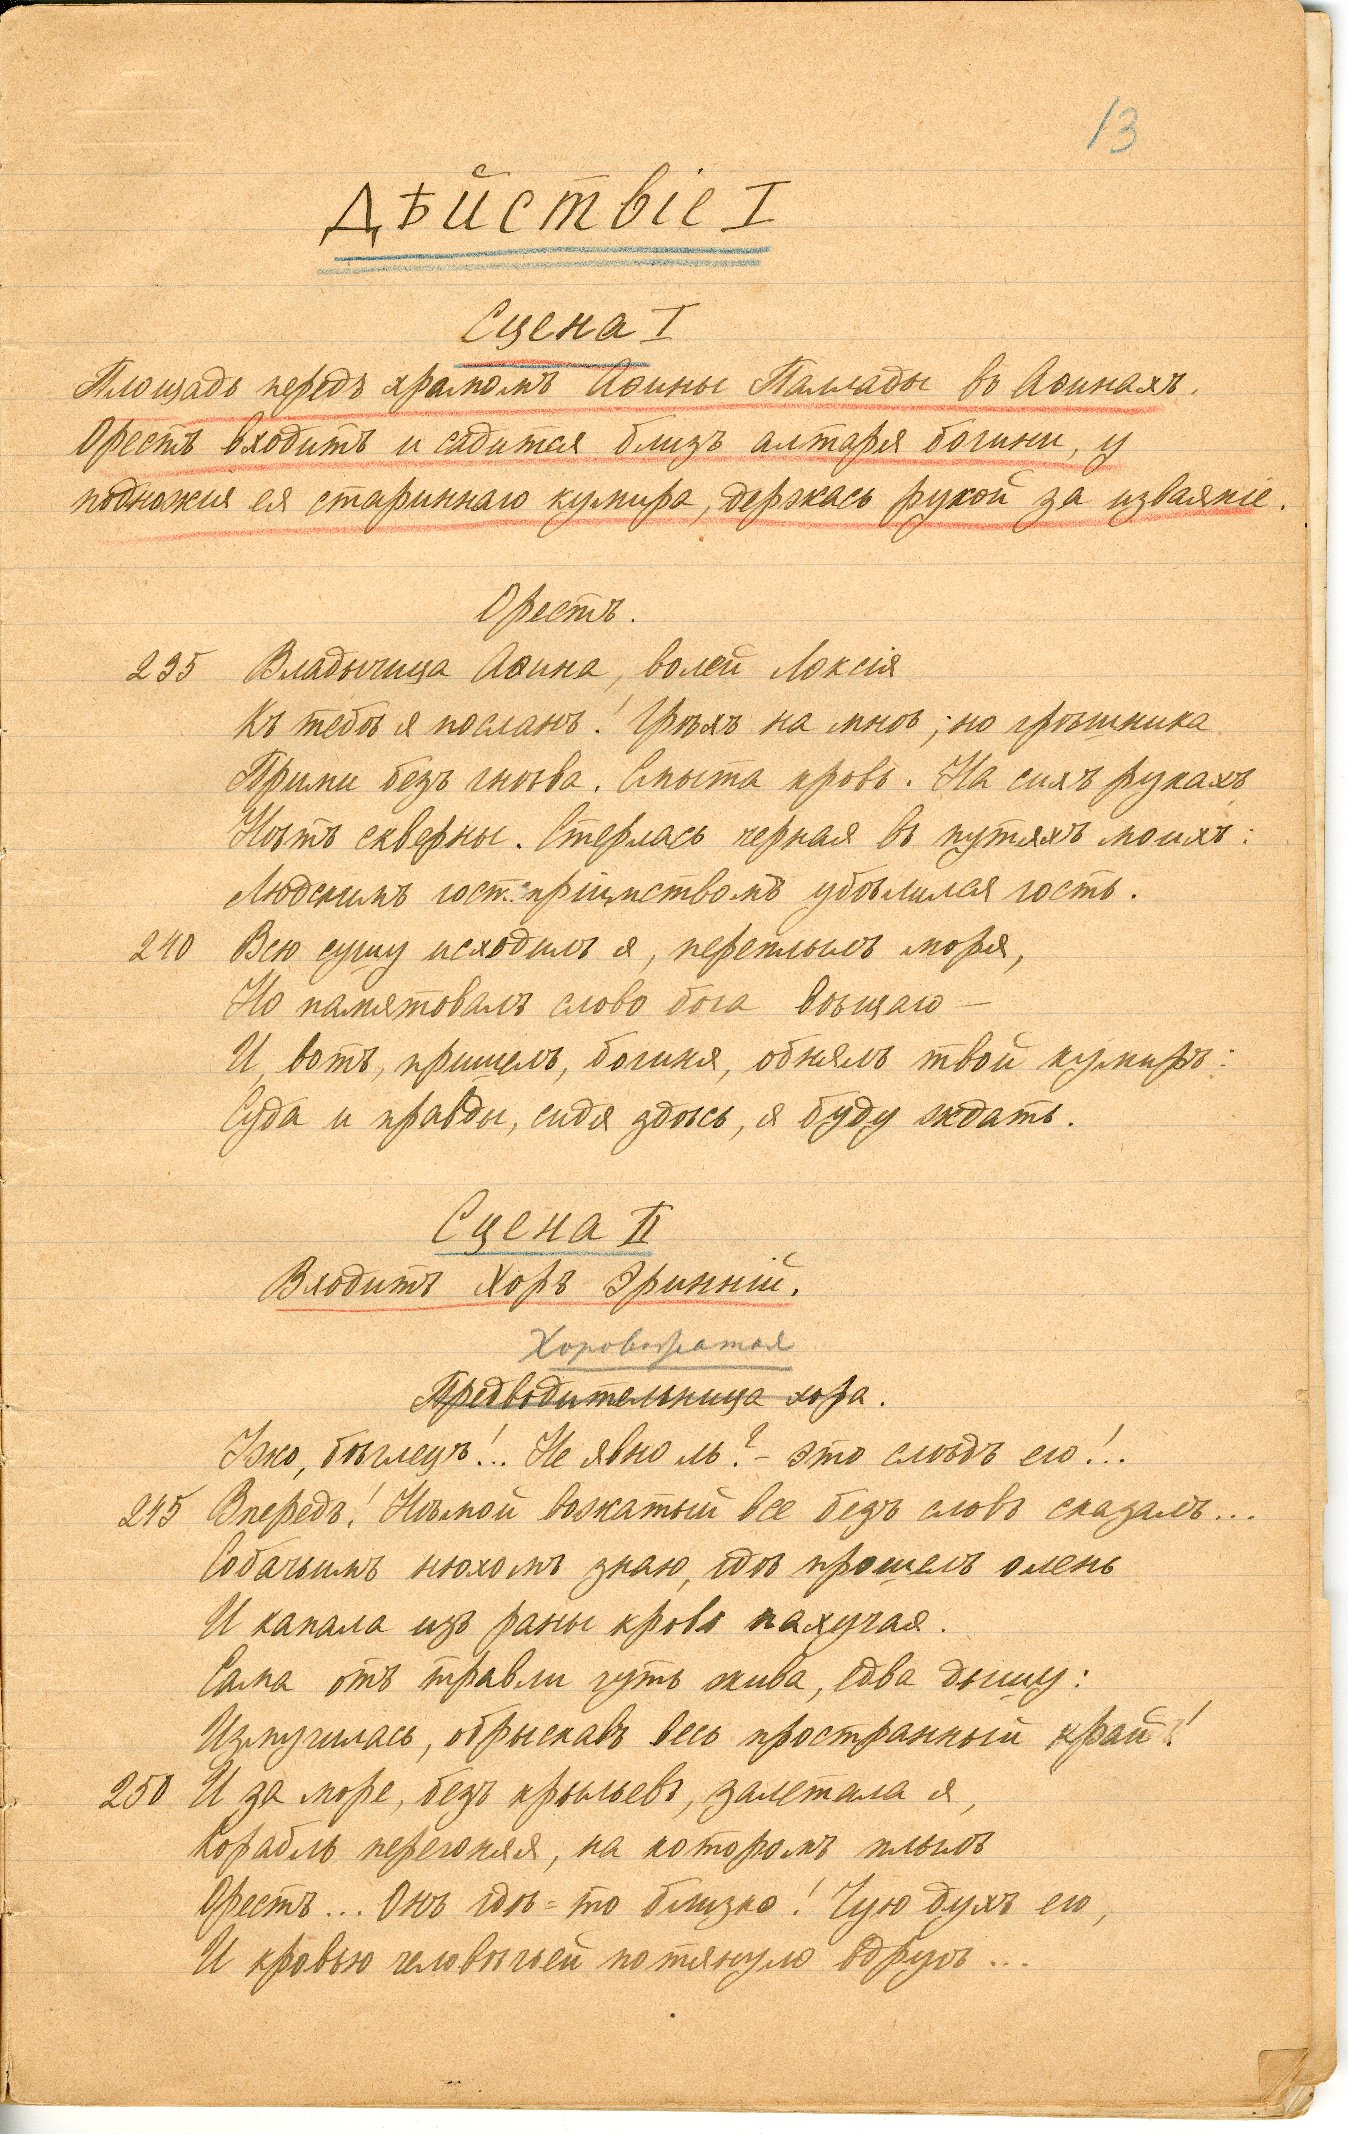 13
Дѣйствіе I
Сцена I
Площадь передъ храмомъ Аѳины Паллады въ Аѳинахъ.
Орестъ входитъ и садится близъ алтаря богини, у
подножія ея стариннаго кумира, держась рукой за изваяніе.
Орестъ.
235 Владычица Аѳина, волей Локсія
Къ тебѣ я посланъ! Грѣхъ на мнѣ; но грѣшника
Прими безъ гнѣва. Смыта кровь. На сихъ рукахъ
Нѣтъ скверны. Стерлась черная въ путяхъ моихъ:
Людскимъ гостепріимствомъ убѣлился гость.
240 Всю сушу исходилъ я, переплылъ моря,
Но памятовалъ слово бога вѣщаго —
И, вотъ, пришелъ, богиня, обнялъ твой кумиръ:
Суда и правды, сидя здѣсь, я буду ждать.
Сцена II
Входитъ Хоръ Эринній.
Хоровожатая
Предводительница хора.
Ужо, бѣглецъ!.. Не явно ль? – это слѣдъ его!..
245 Впередъ! Нѣмой вожатый все безъ словъ сказалъ...
Собачьимъ нюхомъ знаю, гдѣ прошелъ олень
И капала изъ раны кровь пахучая.
Сама отъ травли чуть жива, едва дышу:
Измучилась, обрыскавъ весь пространный край!
250 И за море, безъ крыльевъ, залетала я,
Корабль перегоняя, на которомъ плылъ
Орестъ... Онъ гдѣ-то близко! Чую духъ его,
И кровью человѣчьей потянуло вдругъ...